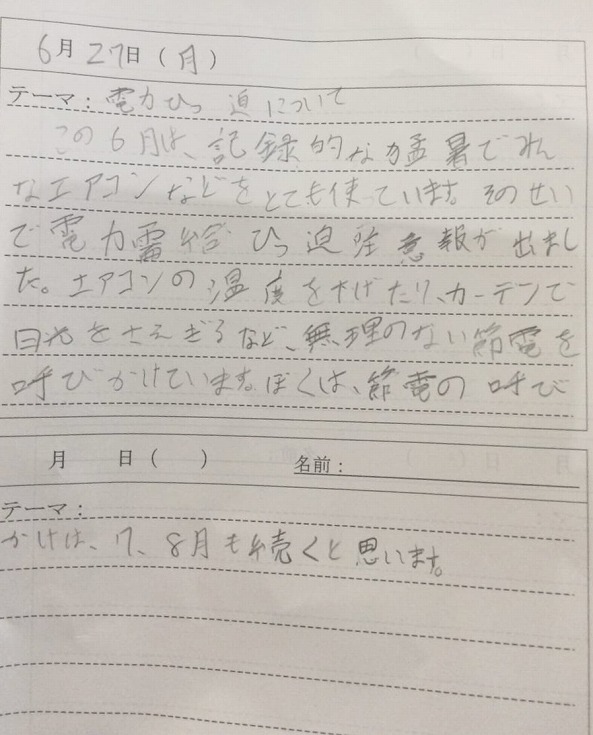 6月27日(月)
テーマ:電力ひっ迫について
この6月は、記録的な猛暑でみん
なエアコンなどをとても使っています。そのせい
で電力需給ひっ迫注意報が出まし
た。エアコンの温度を下げたり、カーテンで
日光をさえぎるなど、無理のない節電を
呼びかけています。ぼくは、節電の呼び
月 日( )
名前:
テーマ:
かけは、7、8月も続くと思います。